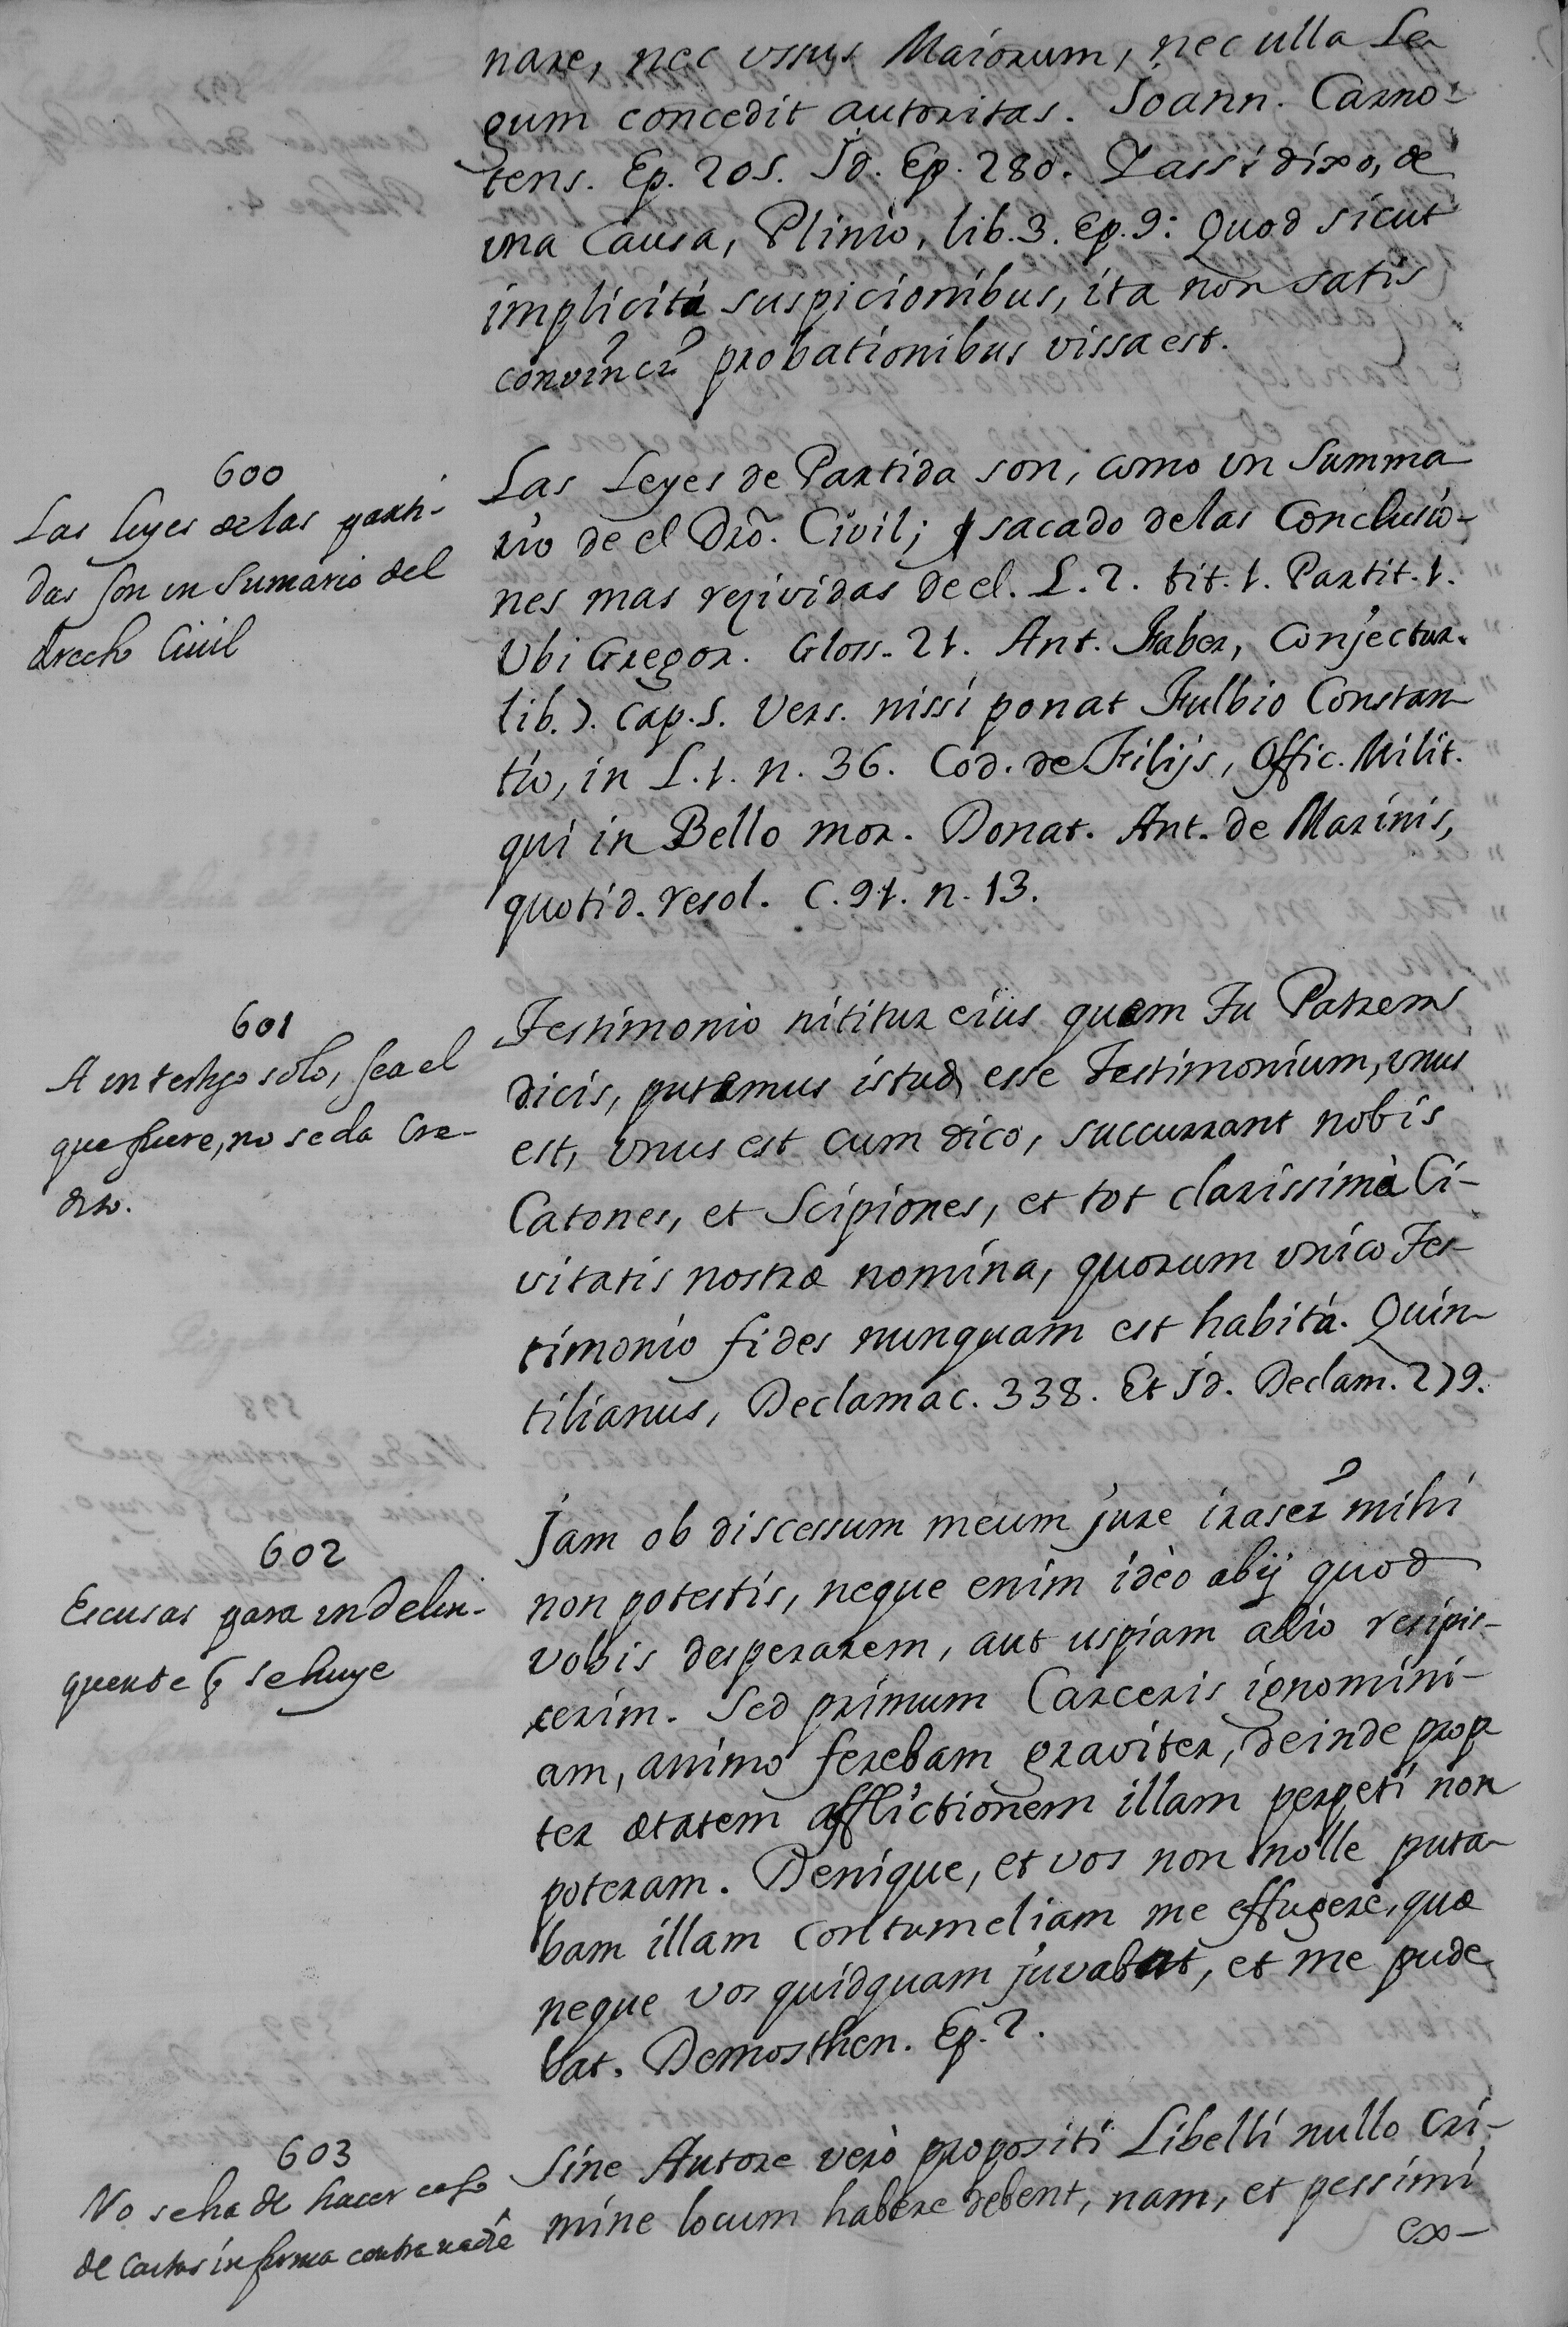 nare, nec vssus Maiorum, nec ulla Le-
gum concedit autoritas. Joann. Carno-
tens. Ep. 205. Jd. Ep. 280. Yassi dixo, de
vna Causa, Plinio, lib. 3. Ep. 9: Quod sicut
implicita suspicionibus, ita non satis
convinci probationibus vissa est.
600
Las leyes de las parti-
das son un Sumario del
drecho Civil
Las Leyes de Partida son, como vn Summa
rio de el Dro. Civil; sacado delas Conclusio-
nes mas rezividas de el. L. 2. tit. 1. Partit. 1.
Vbi Gregor. Gloss. 21. Ant. Faber, Conjectur.
lib. 7. Cap. 5. Vers. nissi ponat Fulbio Constan
tio, in L. 1. n. 36. Cod. de Filijs, Offic. Milit.
qui in Bello mor. Donat. Ant. de Marinis,
quotid. resol. C. 91. n. 13.
601
A un testigo solo, sea el
que fuere, no se da Cre-
dito.
Testimonio nititur eius quem Tu Patrem
dicis, putamus istud esse Testimonium, vnus
est, vnus est cum dico, succurrant nobis
Catones, et Scipiones, et tot clarissima Ci-
vitatis nostræ nomina, quorum vnico Tes-
timonio fides nunquam est habita. Quin-
tilianus, Declamac. 338. Et Jd. Declam. 279.
602
Escusas para un delin-
quente q̃ se huye
Jam ob discessum meum jure irasci mihi
non potestis, neque enim ideò abij quod
vobis desperarem, aut uspiam alio resipis-
cerim. Sed primum Carceris ignomini-
am, animo ferebam graviter, deinde prop
ter ætatem afflictionem illam perpeti non
poteram. Denique, et vos non nolle puta-
bam illam contumeliam me effugere, quæ
neque vos quidquam juvabat, et me pude
bat. Demosthen. Ep. 2.
603
No se ha de hacer caso
de Cartas sin firma contra nadie
Sine Autore verò propositi Libelli nullo Cri-
mine locum habere debent, nam, et pessimi
ex-